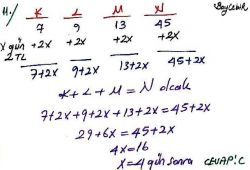 11./ K L M N
7 9 13 45
x gün +2x +2x +2x +2x
2TL
7+2x 9+2x 13+2x 45+2x
K+L+M=N olacak
7+2x+9+2x+13+2x=45+2x
29+6x=45+2x
4x=16
x=4 gün sonra CEVAP: C